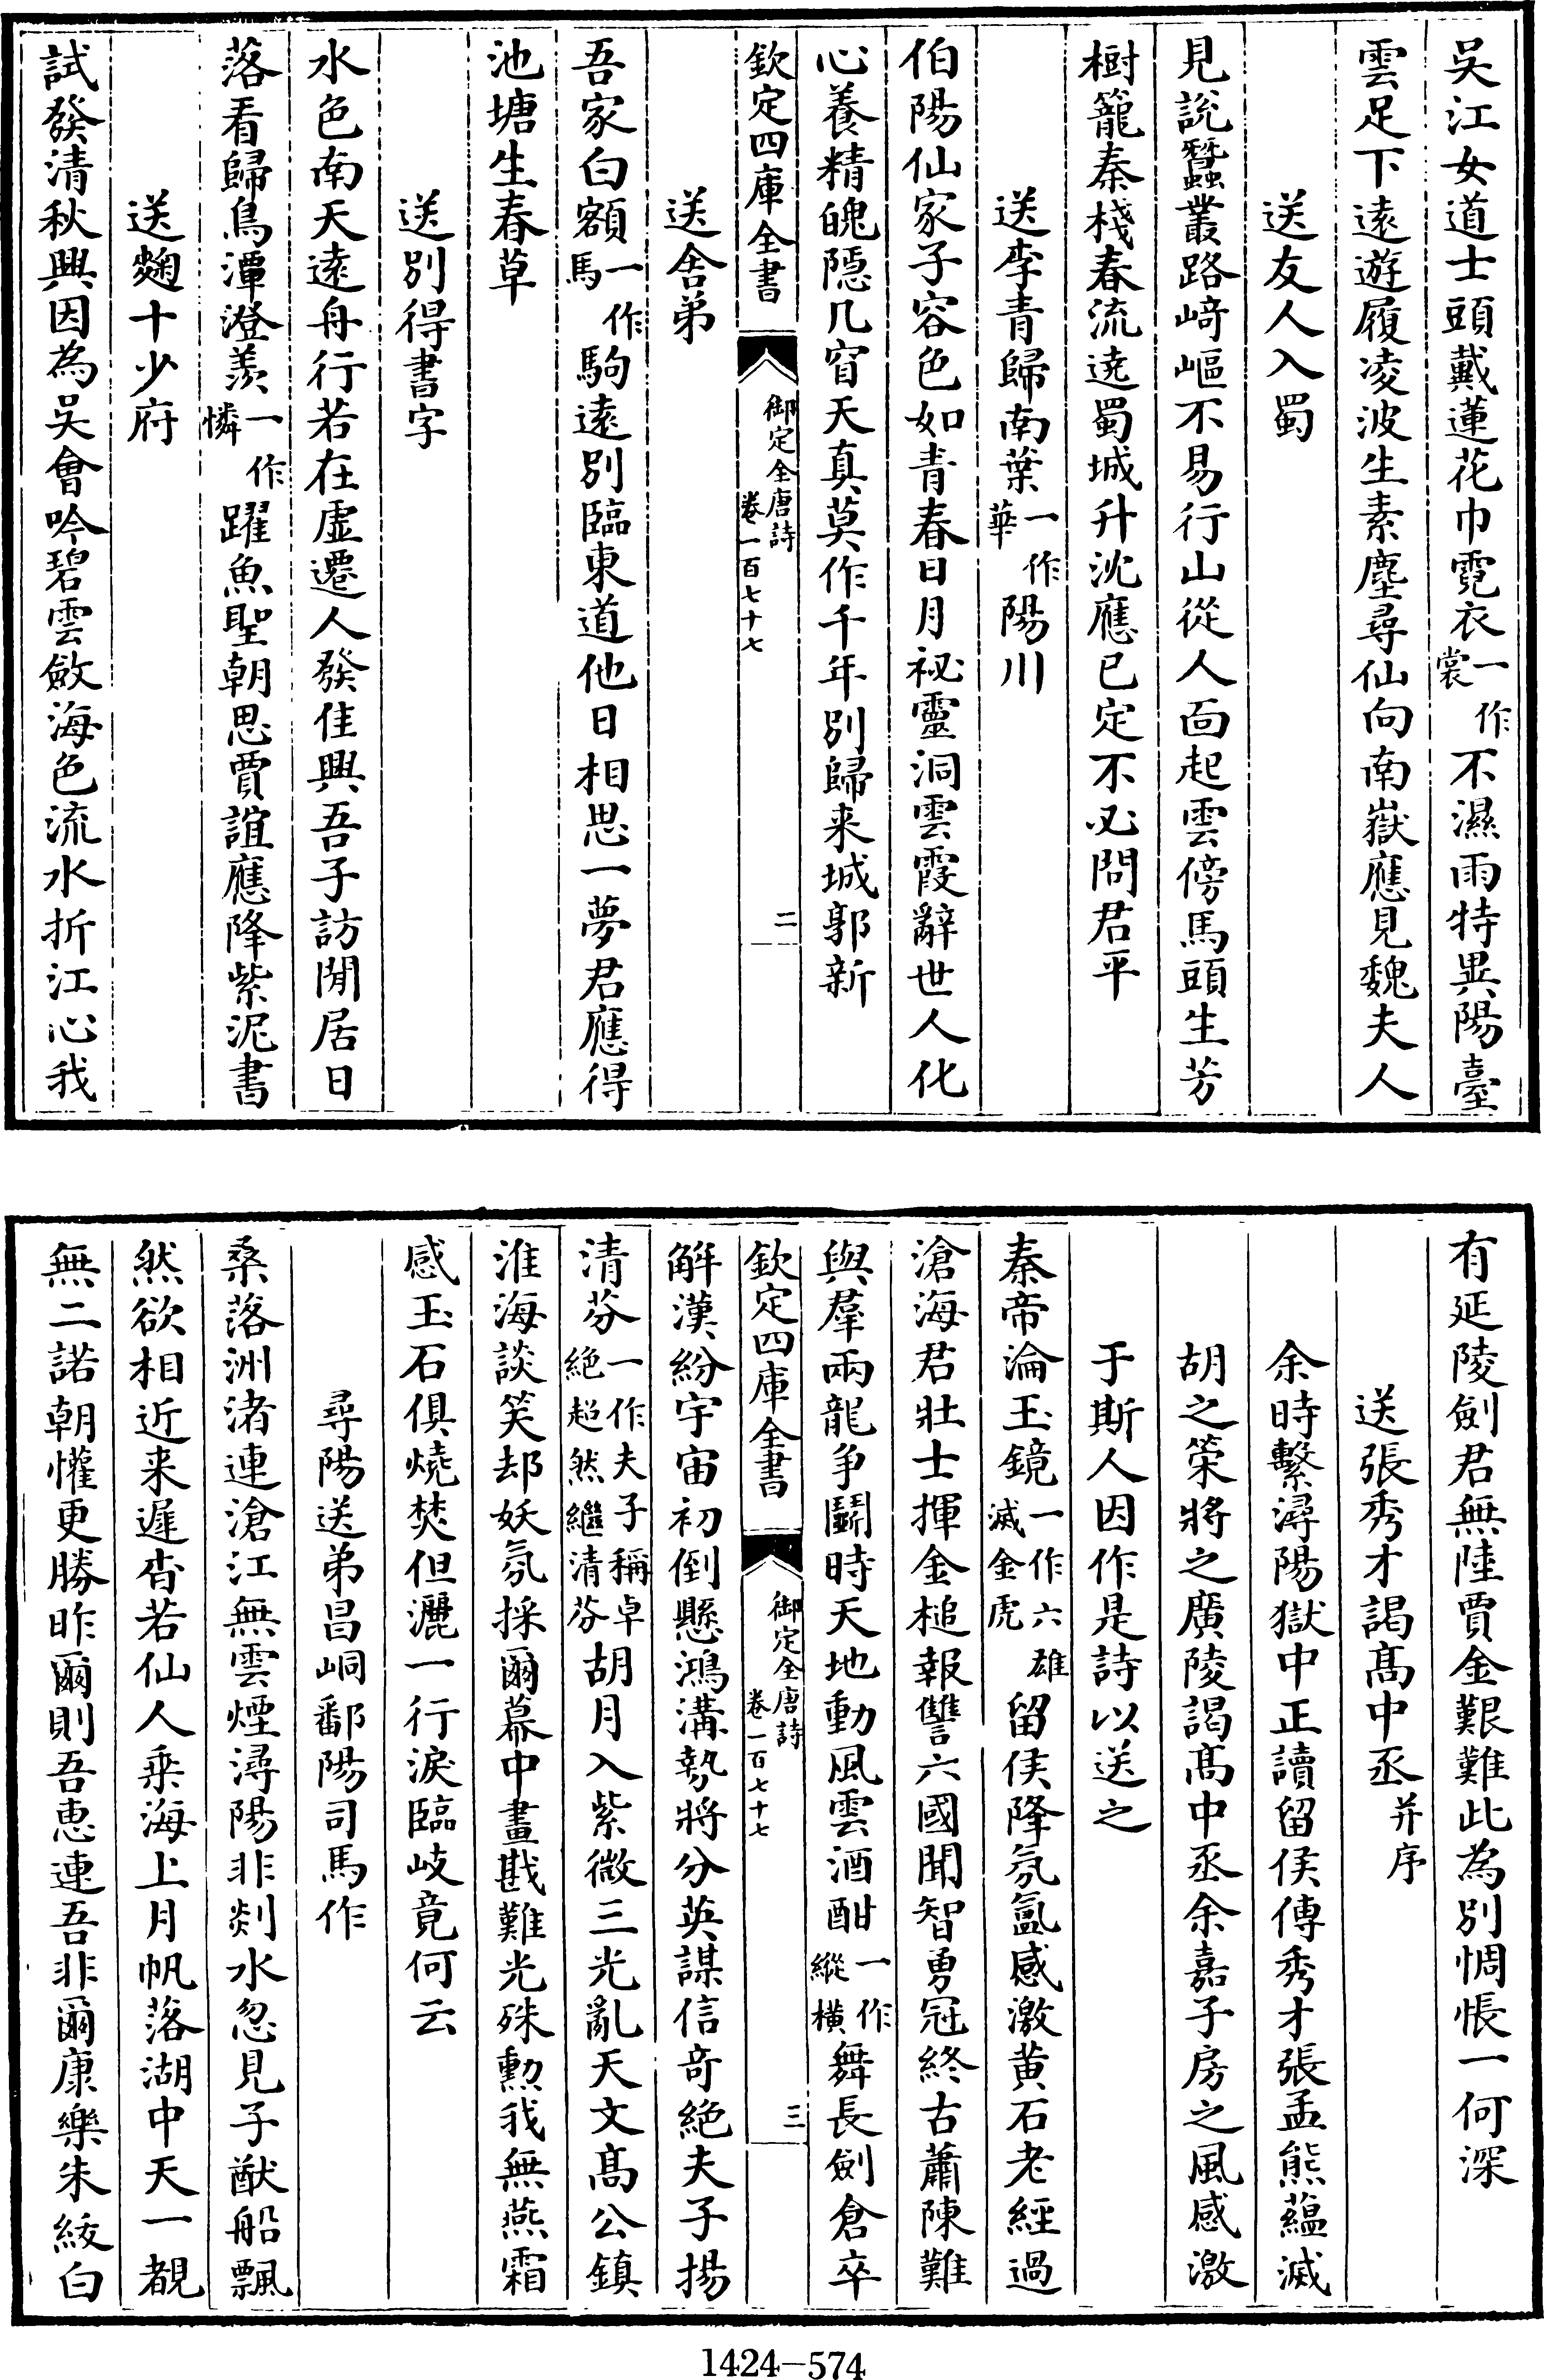 吳江女道士頭戴蓮花巾霓衣一作裳不濕雨特異陽臺
雲足下遠遊履凌波生素塵尋仙向南嶽應見魏夫人
送友人入蜀
見說蠶叢路﨑嶇不易行山從人面起雲傍馬頭生芳
樹籠秦棧春流遶蜀城升沈應已定不必問君平
送李青歸南葉一作華陽川
伯陽仙家子容色如青春日月祕靈洞雲霞辭世人化
心養精魄隱几窅天真莫作千年別歸来城郭新
欽定四庫全書
御定全唐詩
卷一百七十七
二
送舍弟
吾家白額一作馬駒遠別臨東道他日相思一夢君應得
池塘生春草
送別得書字
水色南天遠舟行若在虛遷人發佳興吾子訪閒居日
落看歸鳥潭澄羨一作憐躍魚聖朝思賈誼應降紫泥書
送麴十少府
試發清秋興因為吳會吟碧雲斂海色流水折江心我
有延陵劍君無陸賈金艱難此為別惆悵一何深
送張秀才謁髙中丞并序
余時繫潯陽獄中正讀留侯傳秀才張孟熊蘊滅
胡之策將之廣陵謁髙中丞余嘉子房之風感激
于斯人因作是詩以送之
秦帝淪玉鏡一作六雄滅金虎留侯降氛氳感激黄石老經過
滄海君壯士揮金槌報讐六國聞智勇冠終古蕭陳難
與羣兩龍爭鬭時天地動風雲酒酣一作縱横舞長劍倉卒
欽定四庫全書
御定全唐詩
卷一百七十七
三
解漢紛宇宙初倒懸鴻溝勢將分英謀信奇絶夫子揚
清芬一作夫子稱卓絶超然繼清芬胡月入紫微三光亂天文髙公鎮
淮海談笑却妖氛採爾幕中畫戡難光殊勲我無燕霜
感玉石俱燒焚但灑一行淚臨歧竟何云
尋陽送弟昌峒鄱陽司馬作
桑落洲渚連滄江無雲煙潯陽非剡水忽見子猷船飄
然欲相近来遲杳若仙人乘海上月帆落湖中天一覩
無二諾朝懽更勝昨爾則吾惠連吾非爾康樂朱紱白
1424—574